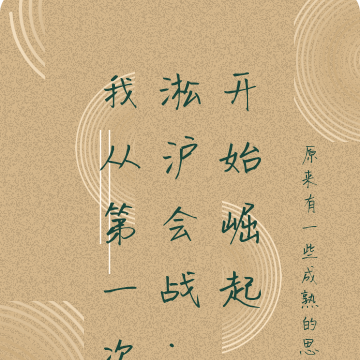 我从第一次
淞沪会战
开始崛起
原来有一些成熟的思